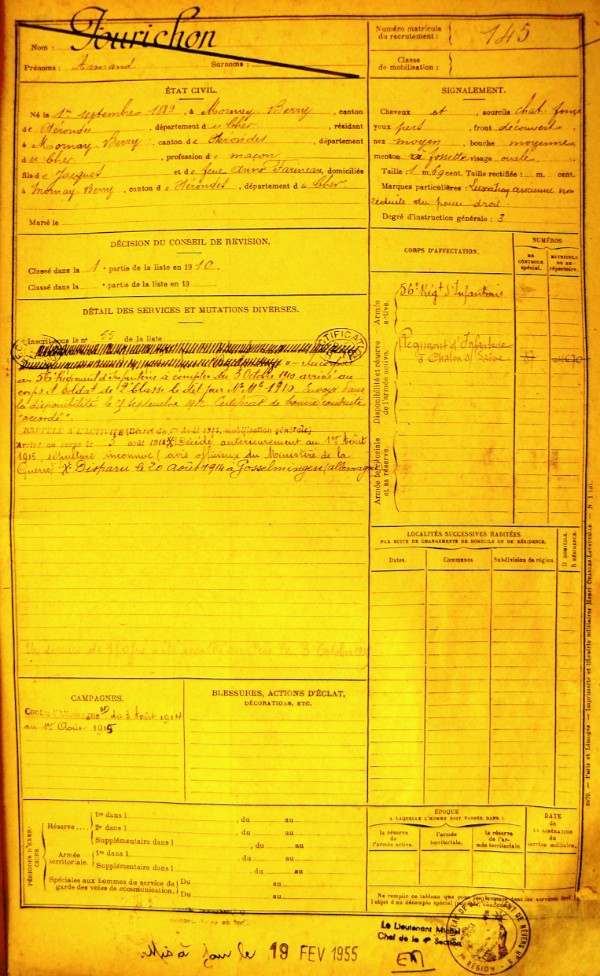 Nom : Jourichon
Prénoms : Armand Surnoms :
Numéro matricule du recrutement : 145
Classe de mobilisation :
ÉTAT CIVIL.
Né le 1er septembre 1889, à Mornay Berry, canton
de Nérondes, département du Cher, résidant
à Mornay Berry, canton de Nérondes, département
du Cher, profession de maçon
fils de Jacques et de feue Anne domiciliés
à Mornay Berry, canton de Nérondes, département du Cher
Marié le
SIGNALEMENT.
Cheveux et sourcils chat. foncé
yeux pers, front découvert
nez moyen, bouche moyenne
menton à fossette visage ovale
Taille 1 m. 69 cent. Taille rectifiée : m. cent.
Marques particulières : Luxation ancienne non
réduite du pouce droit.
Degré d'instruction générale : 3
DÉCISION DU CONSEIL DE REVISION.
Classé dans la 1e partie de la liste en 1910.
Classé dans la e partie de la liste en 19
CORPS D'AFFECTATION.
NUMÉROS
AU CONTRÔLE spécial.
MATRICULE OU AU répertoire.
Armée active.
56e Régt d'Infanterie
Disponibilité et réserve de l'armée active.
Régiment d'Infanterie
de Chalon s/ Saône
Armée territoriale et sa réserve.
DÉTAIL DES SERVICES ET MUTATIONS DIVERSES.
Inscrit sous le n° 55 de la liste
Incorporé
au 56e Régiment d'Infanterie à compter du 3 Octobre 1910 arrivé au
corps et soldat de 2e Classe le dit jour No Mle 1910
la disponibilité le 27 Septembre 1912 Certificat de bonne conduite
"accordé"
RAPPELÉ À L'ACTIVITÉ (Décret du 1er Août 1914, mobilisation générale)
Arrivé au corps le 3 août 1914 X Décédé antérieurement au 1er Août
1915, sépulture inconnue (avis officieux du Ministère de la
Guerre) X Disparu le 20 Août 1914 à Gosselmingen (allemagne)
LOCALITÉS SUCCESSIVES HABITÉES
PAR SUITE DE CHANGEMENTS DE DOMICILE OU DE RÉSIDENCE.
Dates.
Communes
Subdivision de région.
D. DOMICILE.
R. RÉSIDENCE.
CAMPAGNES.
Contre l'Allemagne du 3 Août 1914
au 1er Août 1915
BLESSURES, ACTIONS D'ÉCLAT,
DÉCORATIONS, ETC.
PÉRIODES D'EXERCICES.
Réserve
1re dans l , du au
2e dans l , du au
Supplémentaire dans l , du au
Armée territoriale.
1re dans l , du au
Supplémentaire dans l , du au
Spéciales aux hommes du service de garde des voies de communication.
Du au
Du au
ÉPOQUE
A LAQUELLE L'HOMME DOIT PASSER DANS :
la réserve de l'armée active.
l'armée territoriale.
la réserve de l'armée territoriale.
DATE de LA LIBÉRATION du service militaire.
Mis à jour le 19 FEV 1955
Le Lieutenant Michel
Chef de la 4e Section